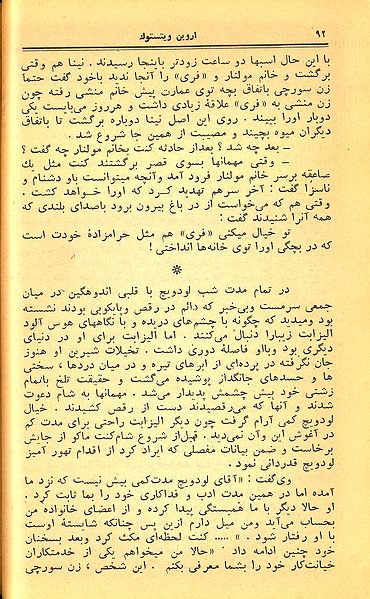 ۹۲ اروین ویتستوك
با این حال اسبها دو ساعت زودتر باینجا رسیدند . نینا هم وقتی
برگشت و خانم مولنار و «فری» را آنجا ندید باخود گفت حتماً
زن سورچی باتفاق بچه توی عمارت پیش خانم منشی رفته چون
زن منشی به «فری» علاقهٔ زیادی داشت و هرروز می‌بایست یکی
دوبار اورا ببیند . روی این اصل نینا دوباره برگشت تا باتفاق
دیگران میوه بچیند و مصیبت از همین جا شروع شد .
ــ بعد چه شد ؟ بعداز حادثه کنت بخانم مولنار چه گفت ؟
ــ وقتی مهمانها بسوی قصر برگشتند کنت مثل یك
صاعقه برسر خانم مولنار فرود آمد وآنچه میتوانست باو دشنام و
ناسزا گفت : آخر سرهم تهدید کرد که اورا خواهد کشت .
وقتی هم که می‌خواست از در باغ بیرون برود باصدای بلندی که
همه آنرا شنیدند گفت :
تو خیال میکنی «فری» هم مثل حرامزادهٔ خودت است
که در بچگی اورا توی خانه‌ها انداختی !
*
در تمام مدت شب لودویج با قلبی اندوهگین در میان
جمعی سرمست وبی‌خبر که دائم در رقص وپایکوبی بودند نشسته
بود ومیدید که چگونه با چشم‌های دریده و با نگاههای هوس آلود
الیزابت زیبارا دنبال می‌کنند . اما الیزابت برای او در دنیای
دیگری بود وبااو فاصلهٔ دوری داشت . تخیلات شیرین او هنوز
جان نگرفته در پرده‌ای از ابرهای تیره و در میان دردها ، سختی
ها و حسدهای جانگداز پوشیده می‌گشت و حقیقت تلخ باتمام
زشتی خود پیش چشمش پدیدار می‌شد . مهمانها به شام دعوت
شدند و آنها که می‌رقصیدند دست از رقص کشیدند . خیال
لودویج کمی آرام گرفت چون دیگر الیزابت راحتی برای مدت کم
در آغوش این وآن نمی‌دید . قبل‌از شروع شام‌کنت ماکو از جایش
برخاست و ضمن بیانات مفصلی که ایراد کرد از اقدام تهور آمیز
لودویج قدردانی نمود .
وی‌گفت : «آقای لودویج مدت‌کمی بیش نیست که نزد ما
آمده اما در همین مدت ادب و فداکاری خود را بما ثابت کرد .
او حالا دیگر با ما همبستگی پیدا کرده و از اعضای خانواده من
بحساب می‌آید ومن میل دارم ازین پس چنانکه شایستهٔ اوست
با او رفتار شود . » ..... کنت لحظه‌ای مکث کرد وبعد بسخنان
خود چنین ادامه داد «حالا من میخواهم یکی از خدمتکاران
خیانت‌کار خود را بشما معرفی بکنم . این شخص ، زن سورچی